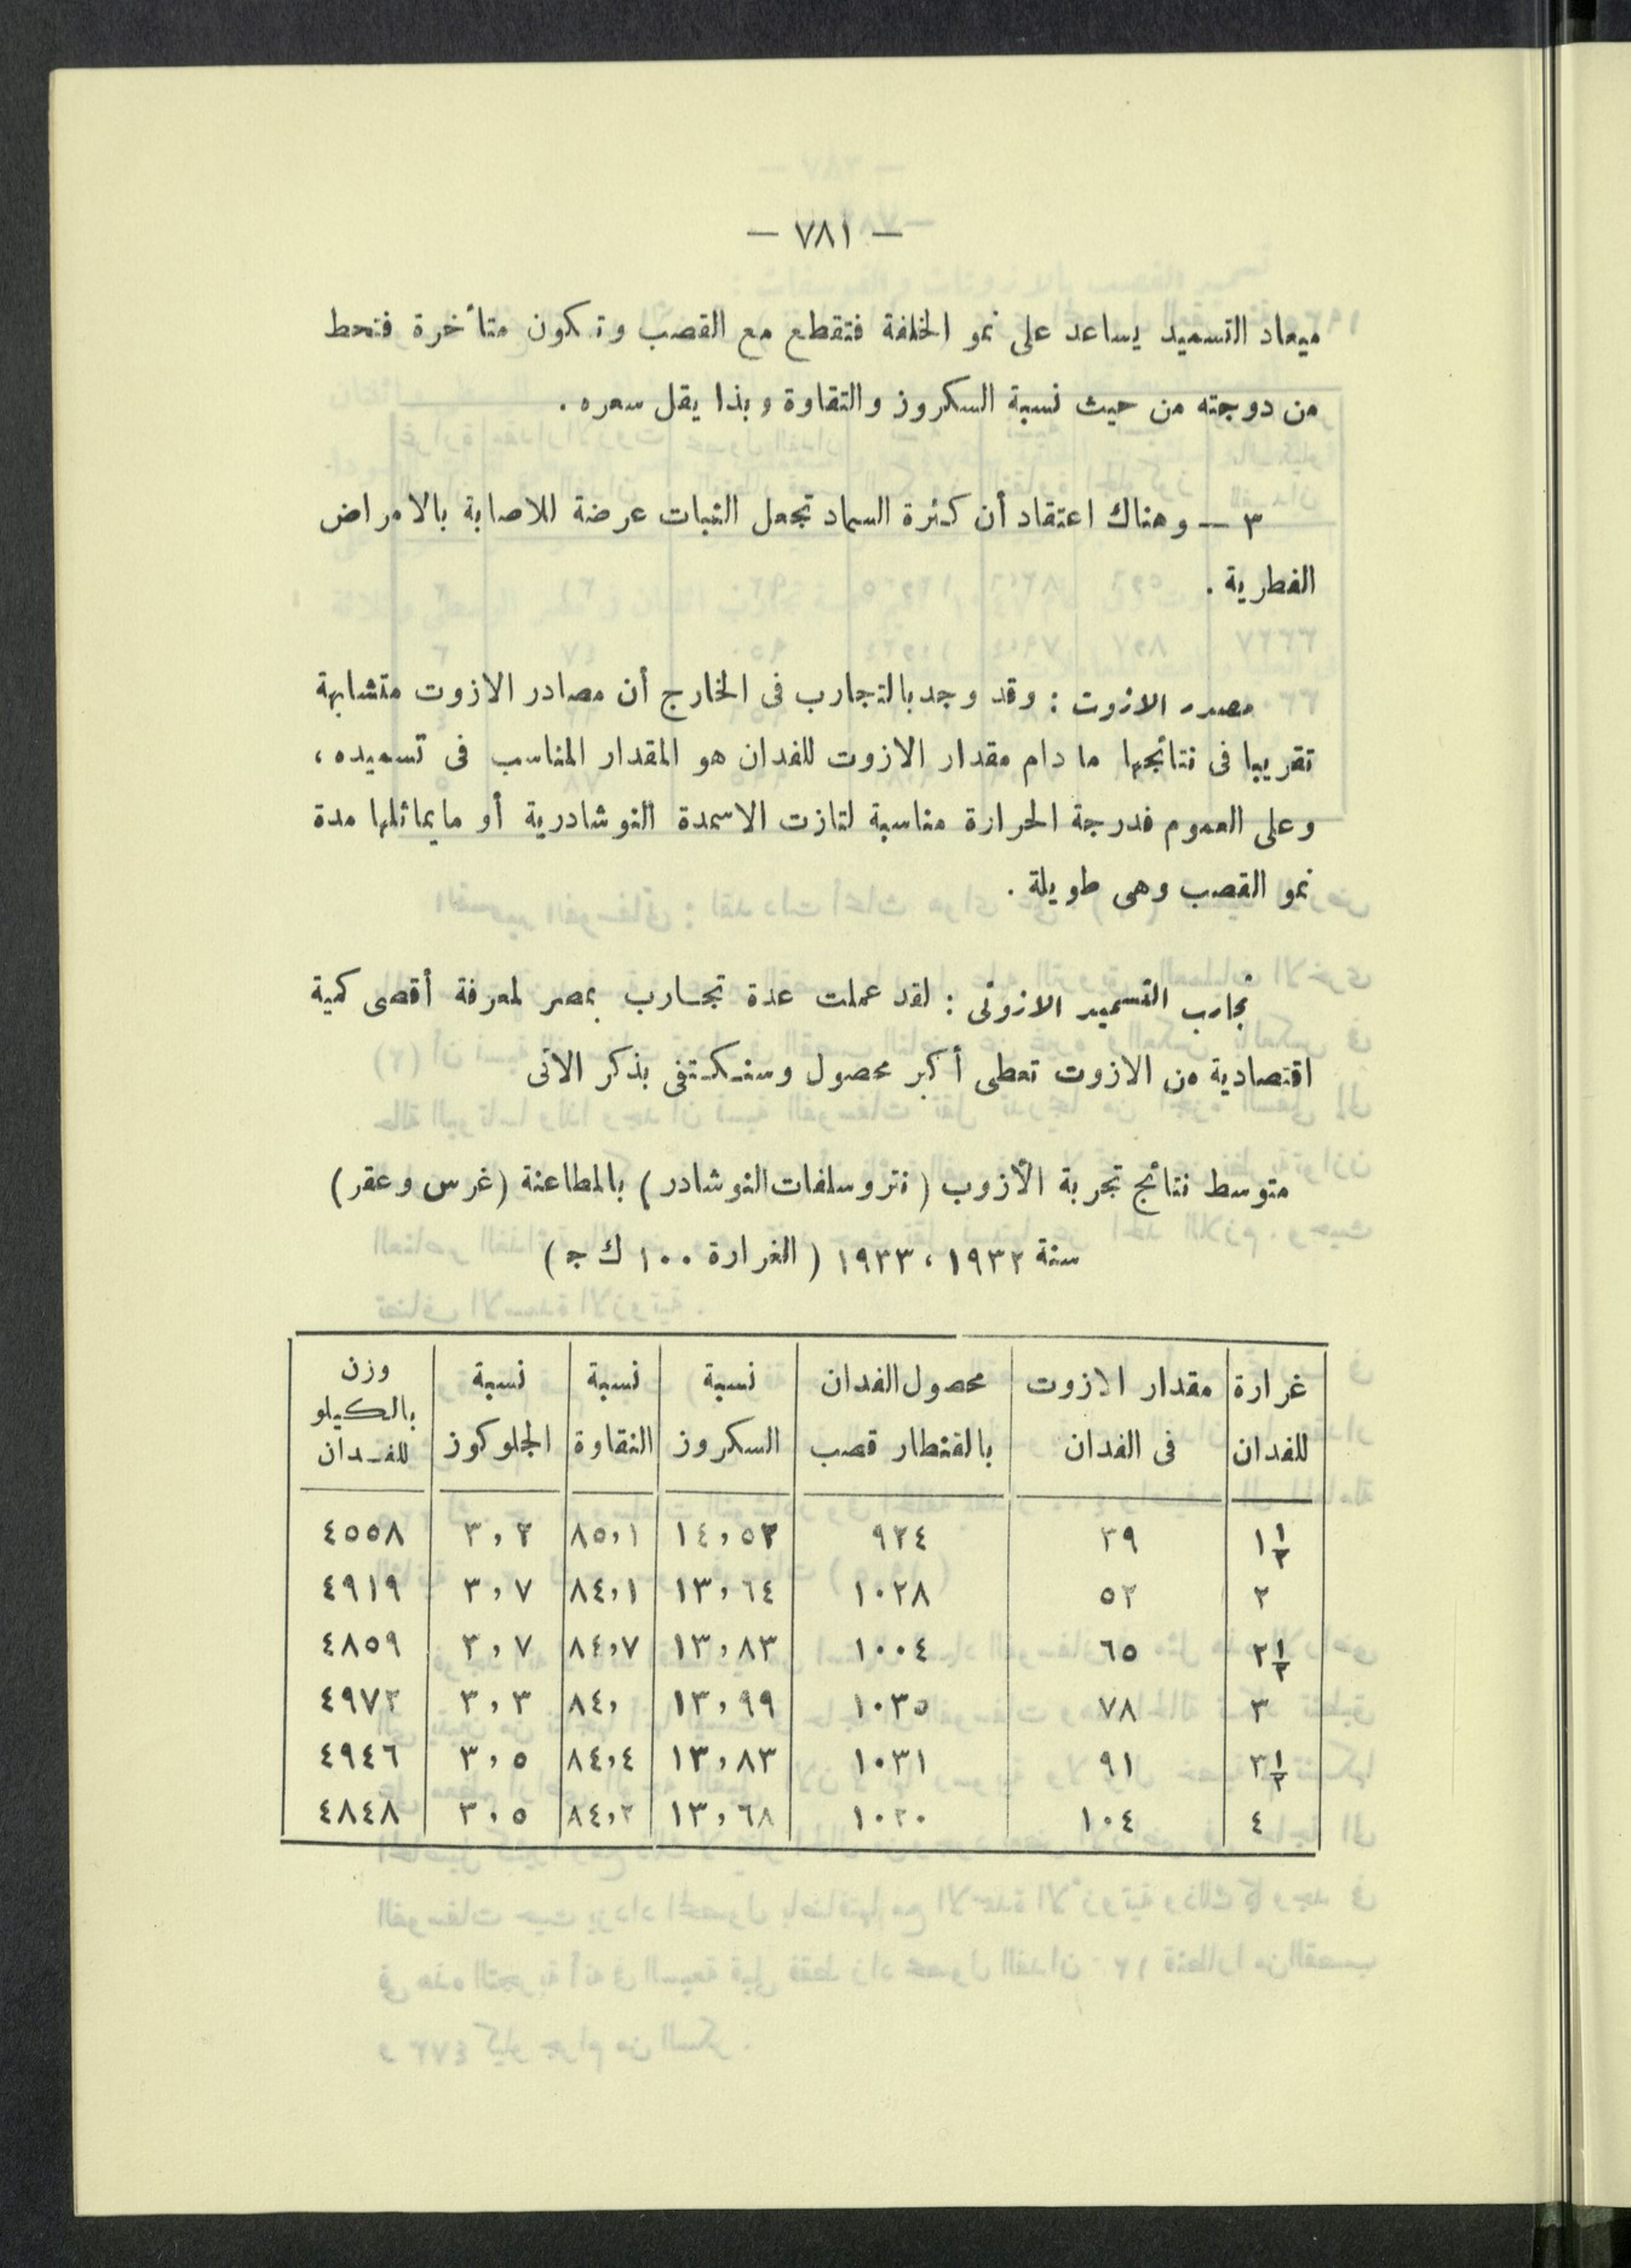 — ٧٨١ —
ميعاد التسميد يساعد على نمو الخلفة فتقطع مع القصب وتكون متأخرة فتحط
من دوجته من حيث نسبة السكروز والتقاوة وبذا يقل سعره .
٣ — وهناك اعتقاد أن كثرة السماد تجعل النبات عرضة للاصابة بالامراض
الفطرية .
مصدر الازوت : وقد وجد بالتجارب فى الخارج أن مصادر الازوت متشابهة
تقريبا فى نتائجها ما دام مقدار الازوت للفدان هو المقدار المناسب فى تسميده ،
وعلى العموم فدرجة الحرارة مناسبة لتازت الاسمدة النوشادرية أو مايماثلها مدة
نمو القصب وهى طويلة .
تجارب التسميد الازوتى : لقد عملت عدة تجارب بمصر لمعرفة أقصى كمية
اقتصادية من الازوت تعطى أكبر محصول وسنكتفى بذكر الاتى
متوسط نتائج تجربة الأزوب ( نتروسلفات النوشادر ) بالمطاعنة (غرس وعقر )
سنة ١٩٣٢ ، ١٩٣٣ ( الغرارة ١٠٠ ك ج )
غرارة للفدان | مقدار الازوت فى الفدان | محصول الفدان بالقنطار قصب | نسبة السكروز | نسبة النقاوة | نسبة الجلوكوز | وزن بالكيلو للفدان
١ ١/٢ | ٣٩ | ٩٢٤ | ١٤,٥٢ | ٨٥,١ | ٣,٢ | ٤٥٥٨
٢ | ٥٢ | ١٠٢٨ | ١٣,٦٤ | ٨٤,١ | ٣,٧ | ٤٩١٩
٢ ١/٢ | ٦٥ | ١٠٠٤ | ١٣,٨٣ | ٨٤,٧ | ٣,٧ | ٤٨٥٩
٣ | ٧٨ | ١٠٣٥ | ١٣,٩٩ | ٨٤,٠ | ٣,٣ | ٤٩٧٢
٣ ١/٢ | ٩١ | ١٠٣١ | ١٣,٨٣ | ٨٤,٤ | ٣,٥ | ٤٩٤٦
٤ | ١٠٤ | ١٠٢٠ | ١٣,٦٨ | ٨٤,٢ | ٣,٥ | ٤٨٤٨